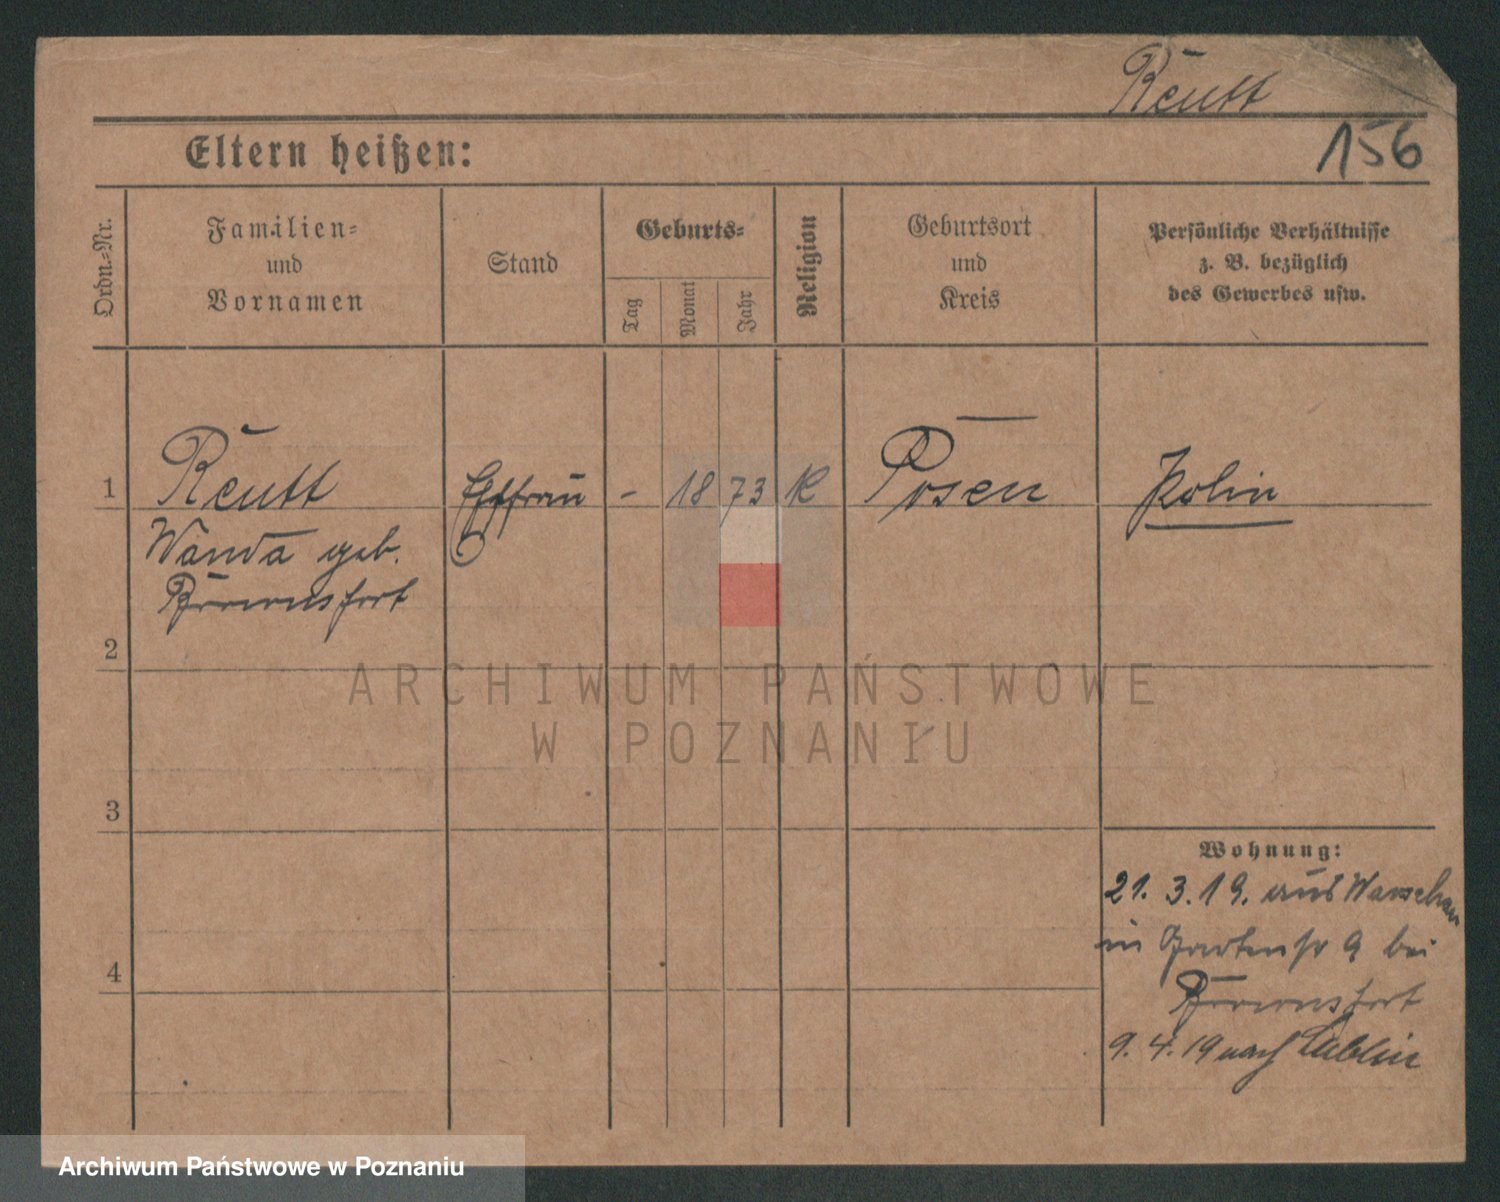 Reutt
156
Eltern heißen:
Ordn.-Nr.
Familien-
und
Vornamen
Stand
Geburts-
Tag
Monat
Jahr
Religion
Geburtsort
und
Kreis
Persönliche Verhältnisse
z. B. bezüglich
des Gewerbes usw.
1
Reutt
Wanda geb.
Ehefrau
- 18 73
K
Posen
Polin
2
3
4
Wohnung:
21. 3. 19. aus Warschau
in Gartenstr 9 bei
9. 4. 19 nach Lublin
ARCHIWUM PAŃSTWOWE
W POZNANIU
Archiwum Państwowe w Poznaniu